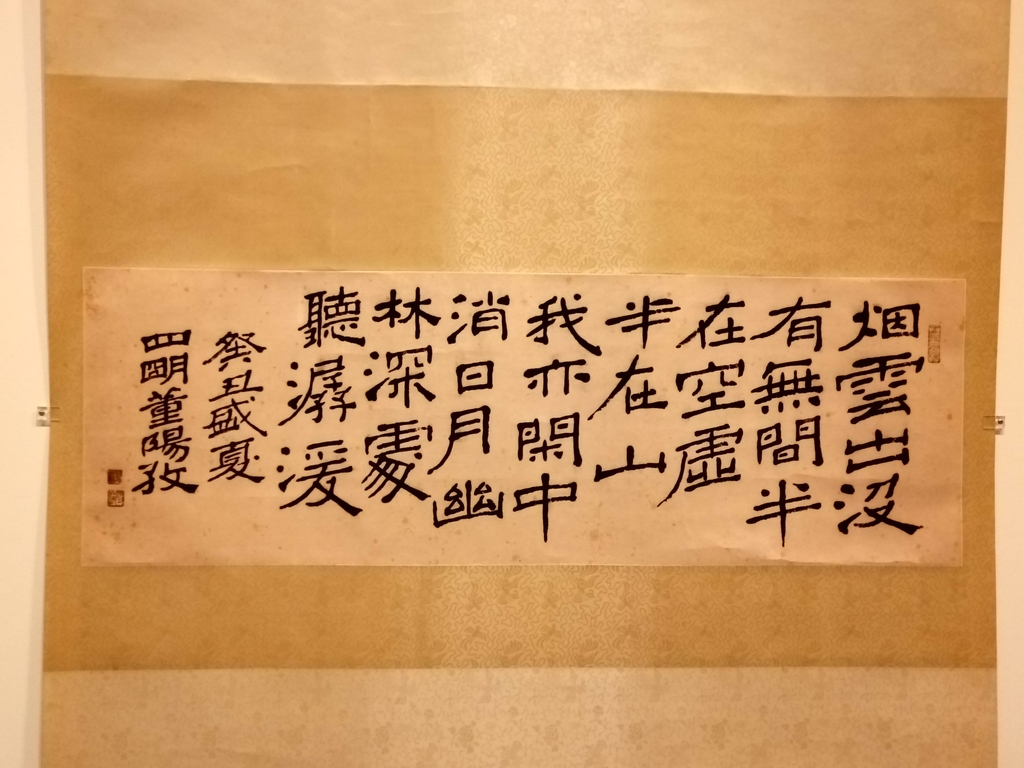 烟雲出沒
有無間半
在空虛
半在山
我亦閑中
消日月幽
林深處
聽潺湲
癸丑盛夏
四明董陽孜